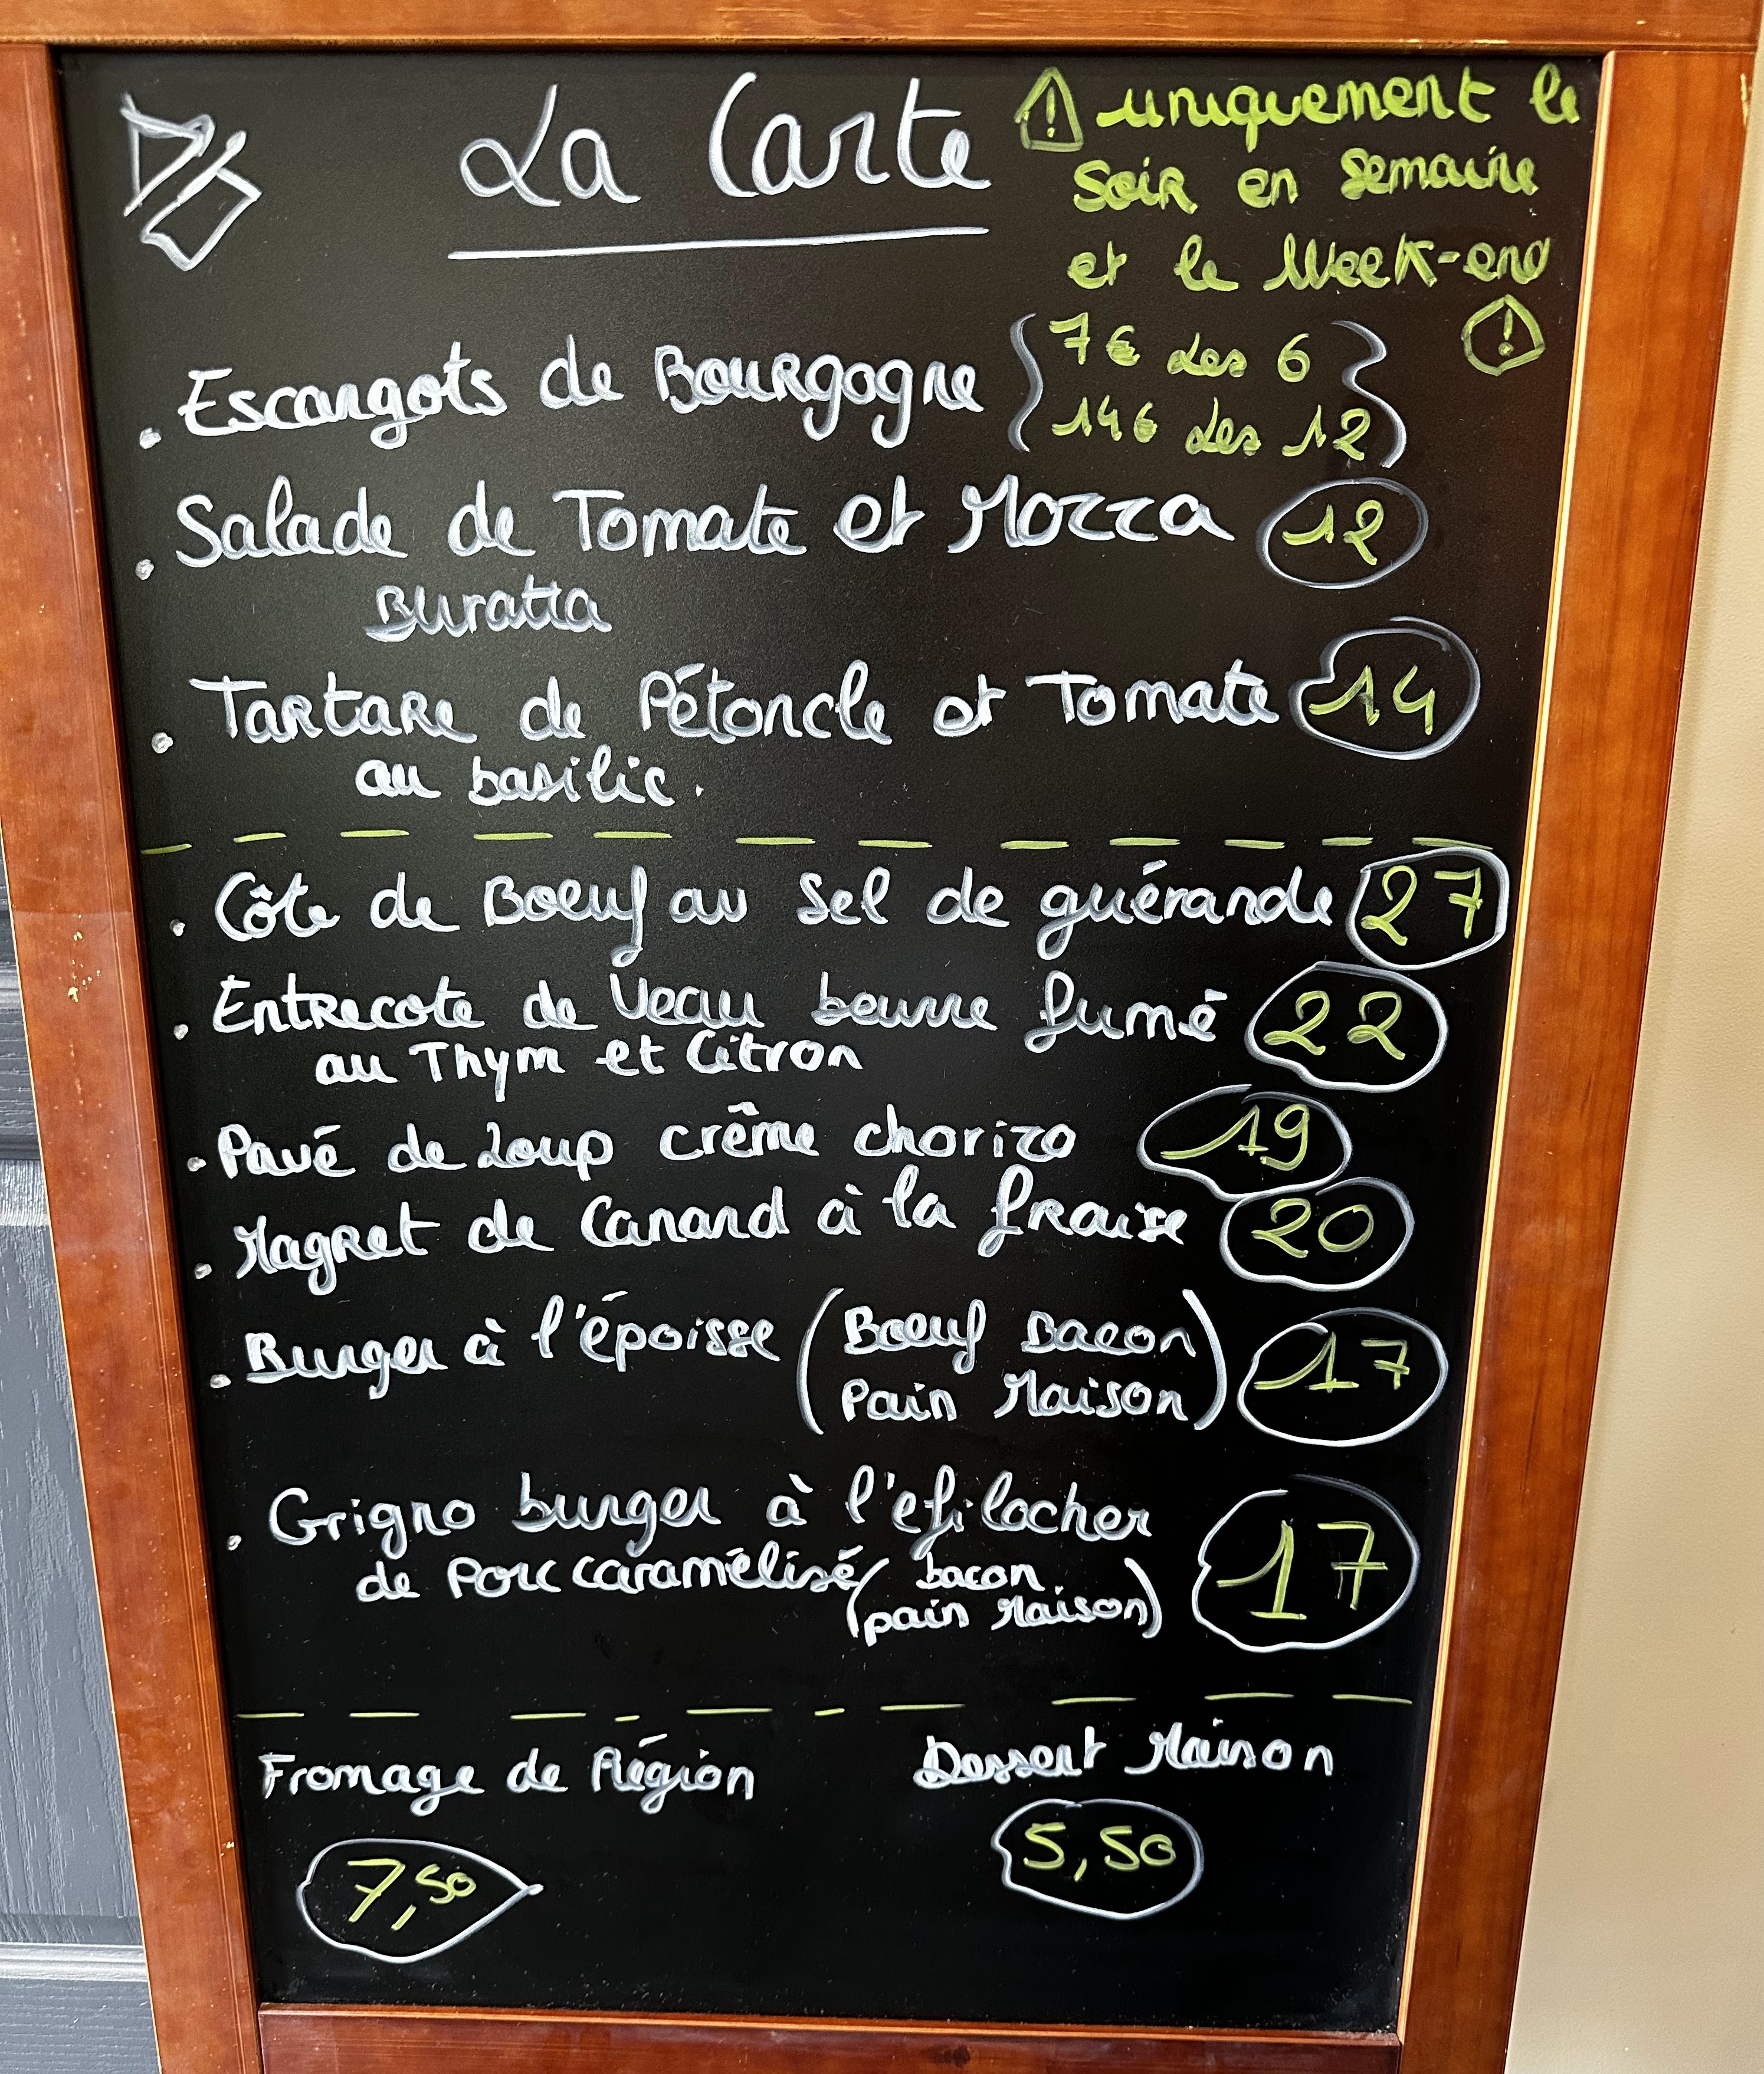 La Carte
⚠ uniquement le
soir en semaine
et le Week-end
!
. Escargots de Bourgogne { 7€ les 6 }
14€ les 12
. Salade de Tomate et Mozza 12
Buratta
. Tartare de Pétoncle et Tomate 14
au basilic.
. Côte de Boeuf au sel de guérande 27
. Entrecote de Veau beurre fumé 22
au Thym et Citron
. Pavé de Loup crême chorizo 19
. Magret de Canard à la fraise 20
. Burger à l'époisse (Boeuf Bacon 17
Pain Maison)
. Grigno burger à l'efilocher 17
de Porc caramélisé (bacon
pain Maison)
Fromage de Région Dessert Maison
7,50 5,50